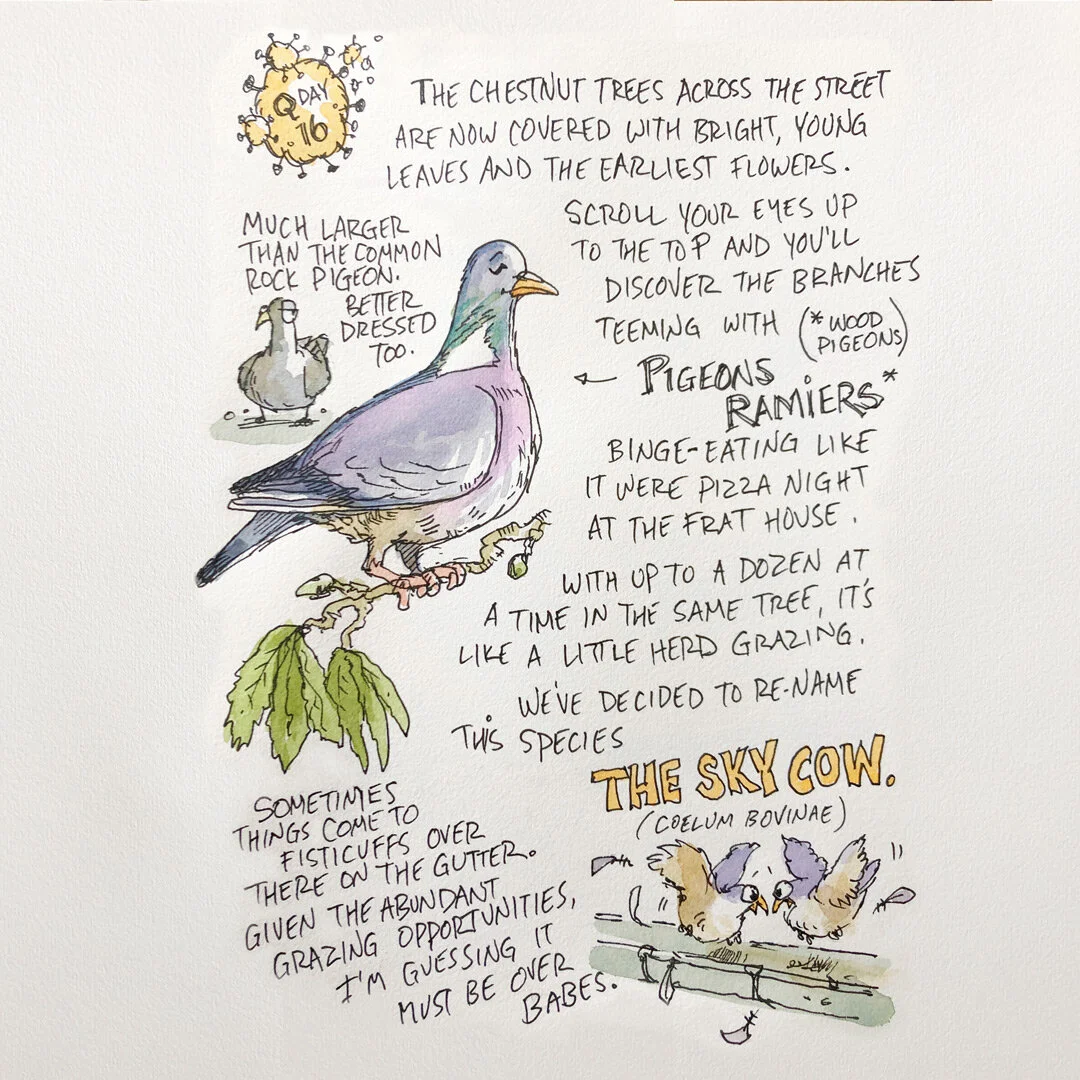 Q DAY
16
THE CHESTNUT TREES ACROSS THE STREET
ARE NOW COVERED WITH BRIGHT, YOUNG
LEAVES AND THE EARLIEST FLOWERS.
MUCH LARGER
THAN THE COMMON
ROCK PIGEON.
BETTER
DRESSED
TOO.
SCROLL YOUR EYES UP
TO THE TOP AND YOU'LL
DISCOVER THE BRANCHES
TEEMING WITH (*WOOD
PIGEONS)
← PIGEONS
RAMIERS*
BINGE-EATING LIKE
IT WERE PIZZA NIGHT
AT THE FRAT HOUSE.
WITH UP TO A DOZEN AT
A TIME IN THE SAME TREE, IT'S
LIKE A LITTLE HERD GRAZING.
WE'VE DECIDED TO RE-NAME
THIS SPECIES
THE SKY COW.
(COELUM BOVINAE)
SOMETIMES
THINGS COME TO
FISTICUFFS OVER
THERE ON THE GUTTER.
GIVEN THE ABUNDANT
GRAZING OPPORTUNITIES,
I'M GUESSING IT
MUST BE OVER
BABES.